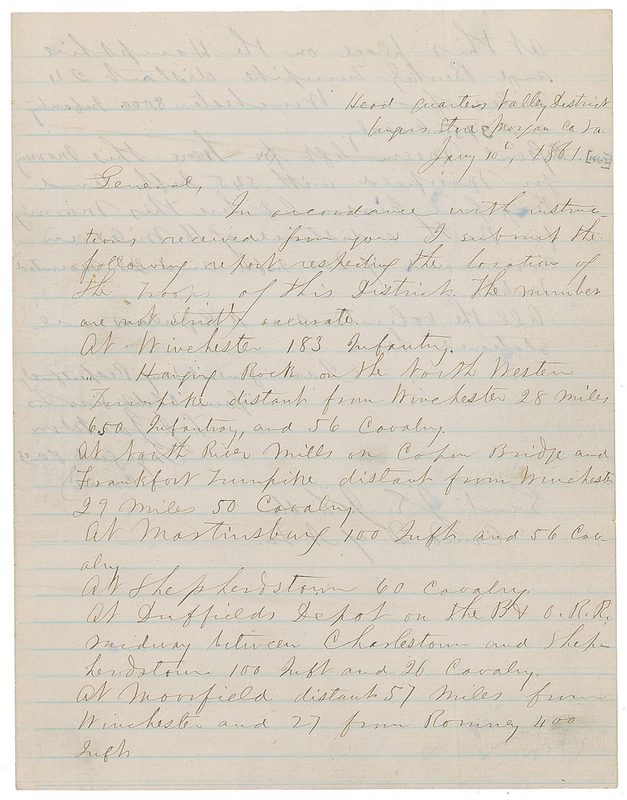 Head Quarters Valley District
Ungers Store, Morgan Co. Va.
Jany 10th, 1861 [1862]
General,
In accordance with instruc-
tions received from you I submit the
following report respecting the location of
the troops of this District. The number
are not strictly accurate.
At Winchester 183 Infantry.
" Hanging Rock on the North Western
Turnpike distant from Winchester 28 miles
650 Infantry, and 56 Cavalry.
At North River Mills on Capon Bridge and
Frankfort Turnpike distant from Winchester
29 miles 50 Cavalry.
At Martinsburg 100 Infty and 56 Cav-
alry.
At Shepherdstown 60 Cavalry.
At Duffields Depot on the B & O. R. R.
midway between Charlestown and Shep-
herdstown 100 Inft and 26 Cavalry.
At Moorfield distant 57 miles from
Winchester and 27 from Romney 400
Infth